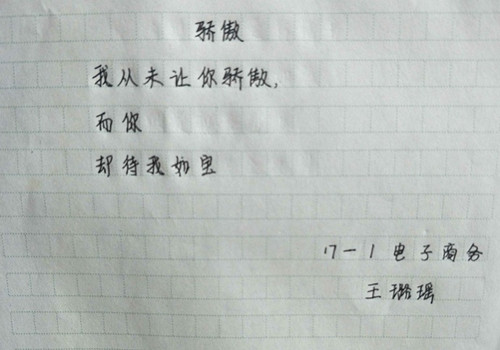 骄傲
我从未让你骄傲,
而你
却待我如宝
17-1 电子商务
王璐瑶